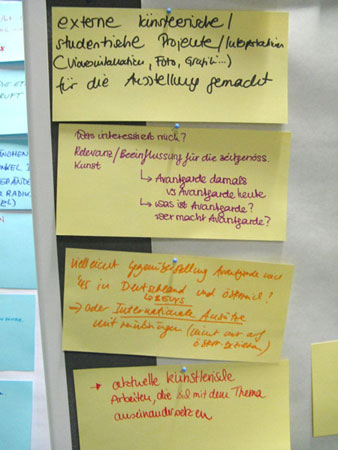 externe künstlerische/
studentische Projekte/Interpretation
(Videoinstallation, Foto, Grafik...)
für die Ausstellung gemacht
Was interessiert mich?
Relevanz/Beeinflussung für die zeitgenöss.
Kunst
↳ Avantgarde damals
vs Avantgarde heute
↳ was ist Avantgarde?
wer macht Avantgarde?
vielleicht Gegenüberstellung Avantgarde
in Deutschland und österreich?
→ Oder Internationale Ansätze
mit einbringen (nicht nur auf
→ aktuelle künstlerische
Arbeiten, die sich mit dem Thema
auseinandersetzen